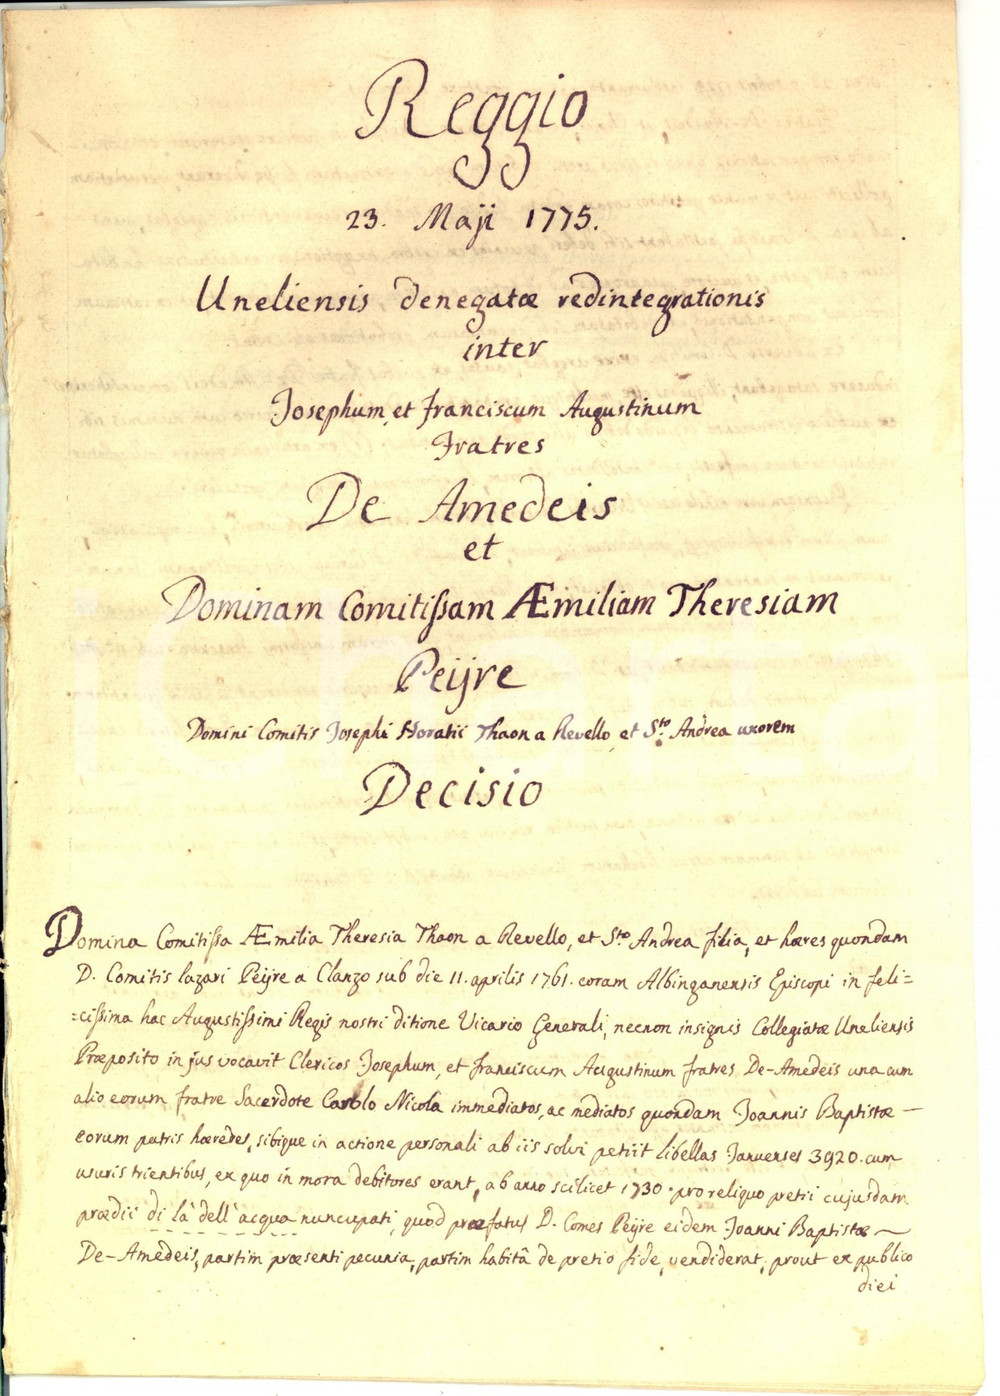 Reggio
23. Maji 1775.
Uneliensis denegatæ redintegrationis
inter
Josephum, et Franciscum Augustinum
Fratres
De Amedeis
et
Dominam Comitissam Æmiliam Theresiam
Peÿre
Domini Comitis Josephi Horatii Thaon a Revello, et S.to Andrea uxorem
Decisio
Domina Comitissa Æmilia Theresia Thaon a Revello, et S.to Andrea filia, et hæres quondam
D. Comitis Lazari Peÿre a Clanzo sub die 11. aprilis 1761. coram Albinganensis Episcopi in feli=
=cissima hac Augustissimi Regis nostri ditione Vicario Generali, necnon insignis Collegiatæ Uneliensis
Præposito in jus vocavit Clericos Josephum, et Franciscum Augustinum fratres De-Amedeis una cum
alio eorum fratre Sacerdote Carolo Nicola immediatos, ac mediatos quondam Joannis Baptistæ —
eorum patris hæredes, sibique in actione personali ab iis solvi petiit libellas Januenses 3920. cum
usuris trientibus, ex quo in mora debitores erant, ab anno scilicet 1730. pro reliquo pretii cujusdam
prædii di là dell'acqua nuncupati, quod præfatus D. Comes Peÿre eidem Joanni Baptistæ —
De-Amedeis, partim præsenti pecunia, partim habitâ de pretio fide, vendiderat, prout ex publico
diei